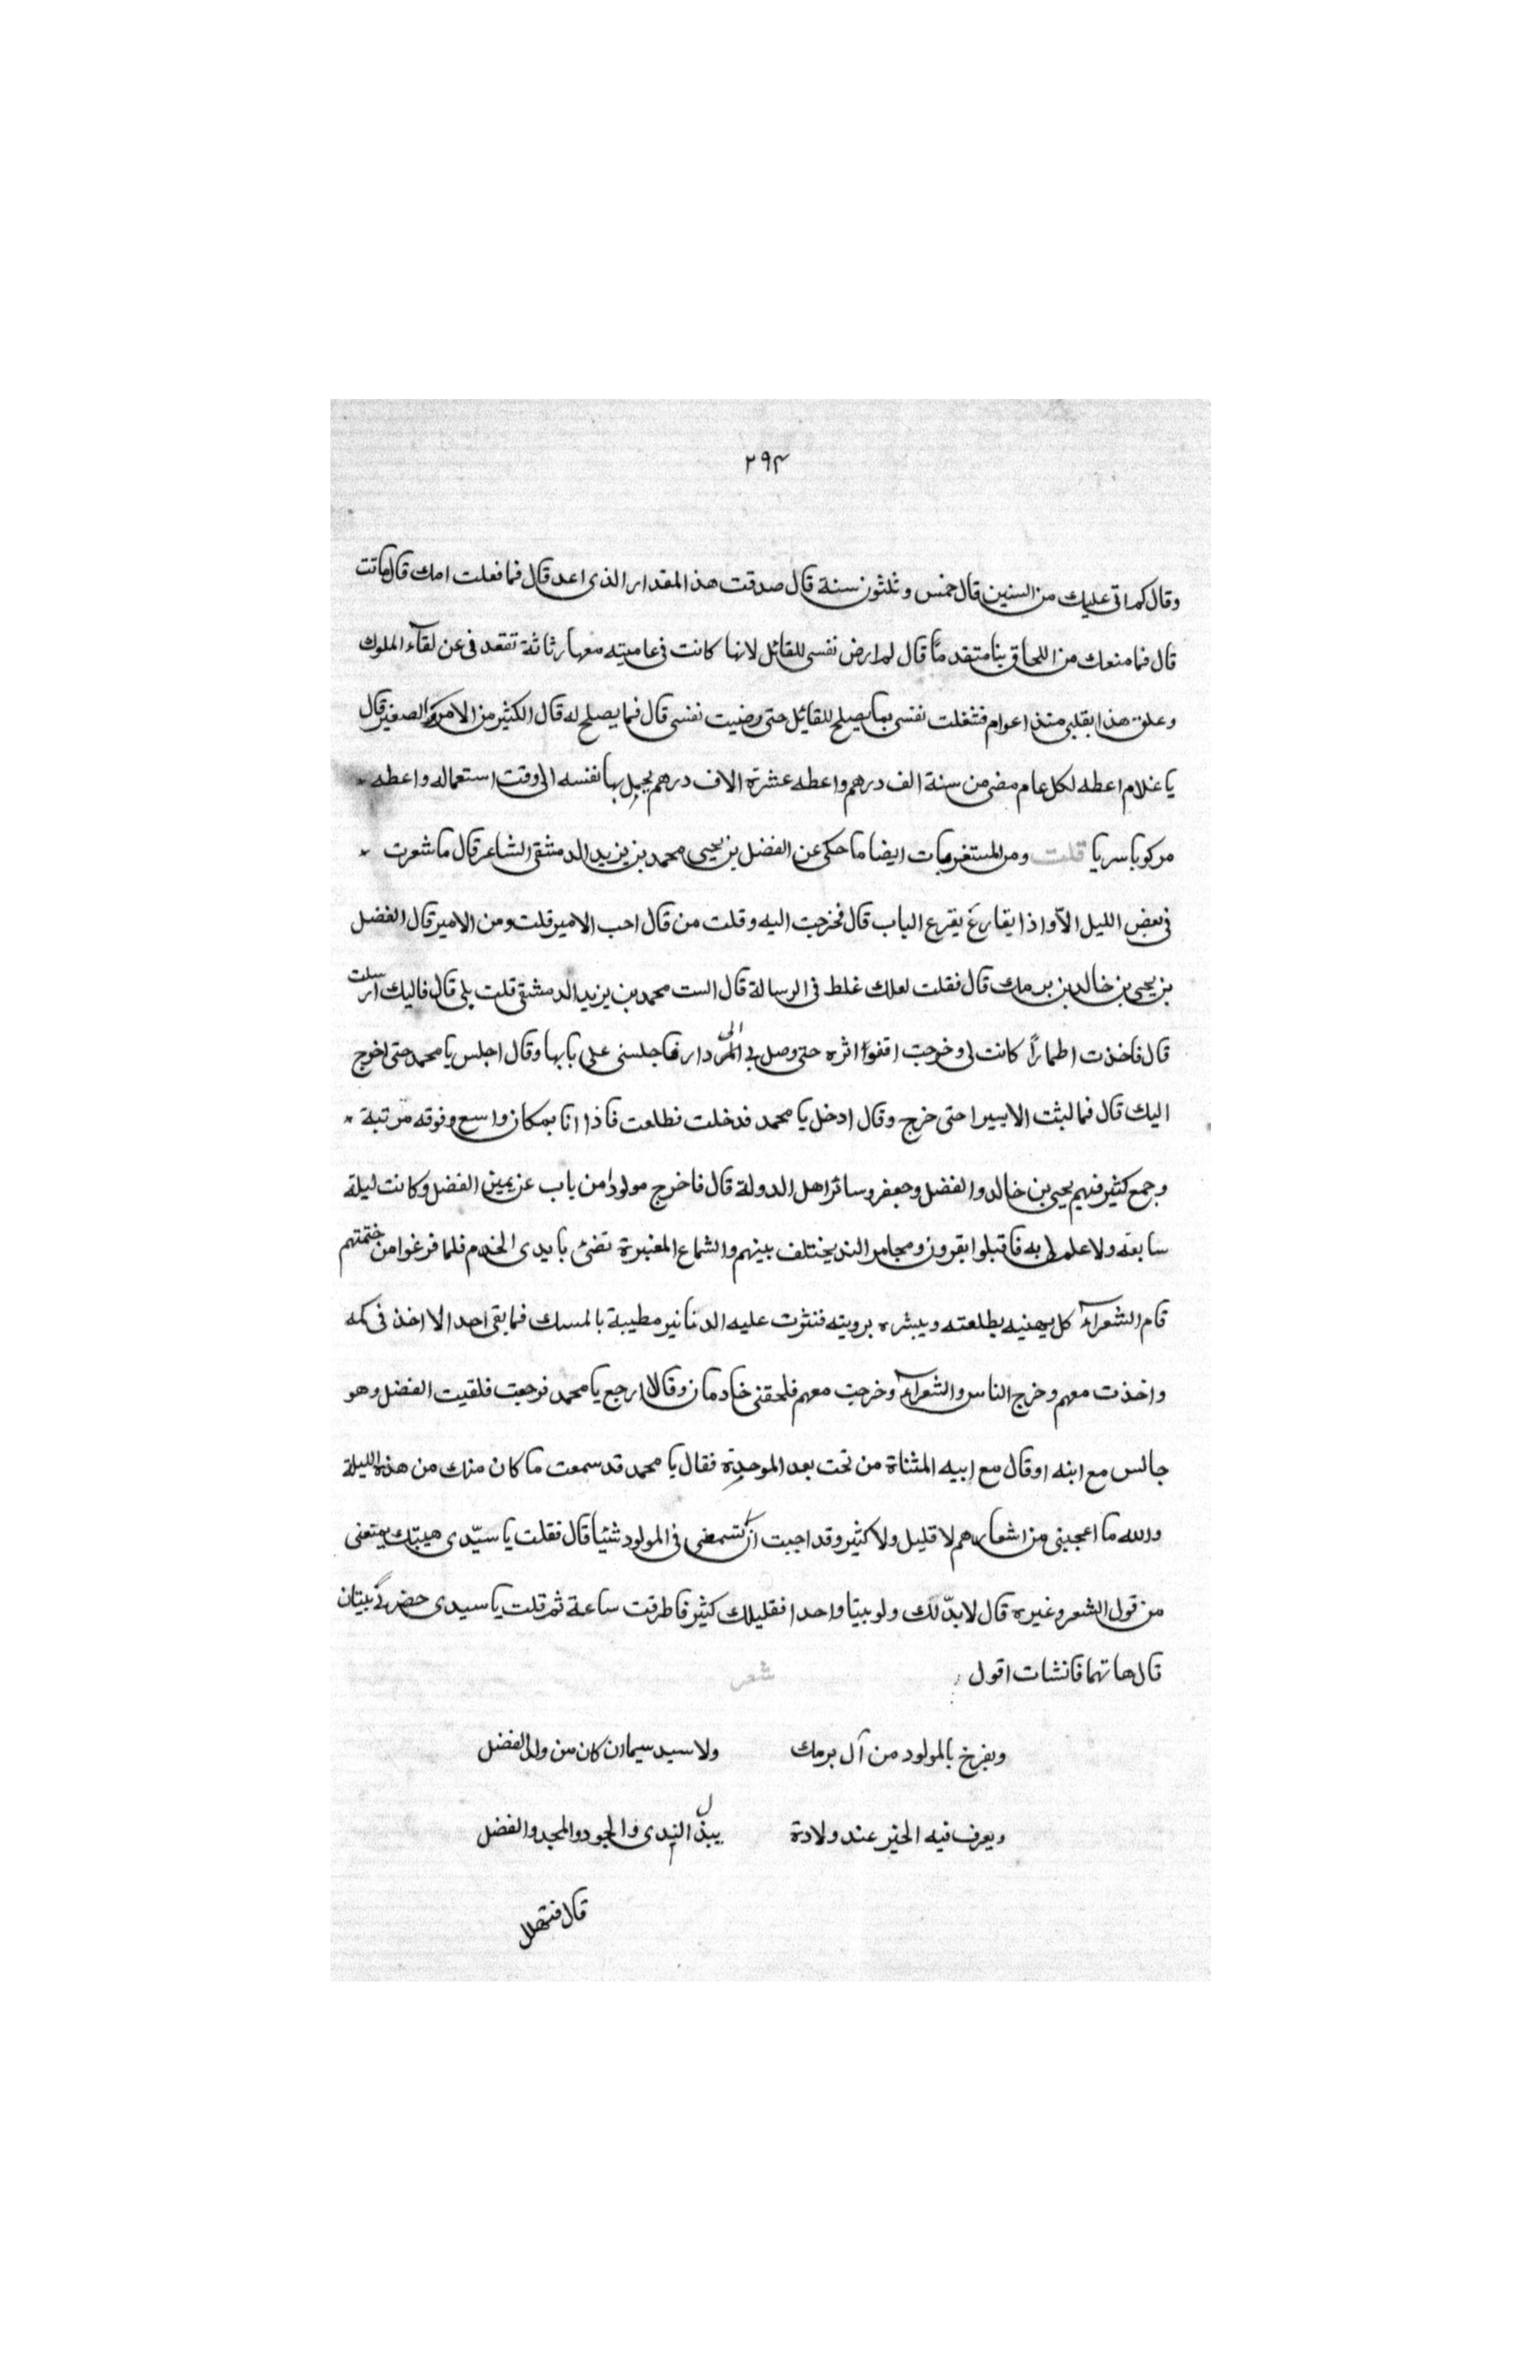 ٢٩٤
وقال كم اتى عليك من السنين قال خمس وثلثون سنة قال صدقت هذ المقدار الذى اعد قال فما فعلت امك قال ماتت
قال فما منعك من اللحاق بنا متقدمًا قال لم ارض نفسى للقائل لانها كانت فى عاميته معها رثاثة تقعد فى عن لقآء الملوك
وعلق هذا بقلبى منذ اعوام فشغلت نفسى بما يصلح للقايل حتى رضيت نفسى قال فما يصلح له قال الكثير من الامر والصغير قال
يا غلام اعطه لكل عام مضى من سنة الف درهم واعطه عشرة الاف درهم يجمل بها نفسه الى وقت استعماله واعطه
مركوبا سريا قلت ومن المستغربات ايضا ما حكى عن الفضل بن يحيى محمد بن يزيد الدمشقى الشاعر قال ما شعرت
فى بعض الليل الاّ واذا بقارع يقرع الباب قال فخرجت اليه وقلت من قال اجب الامير قلت ومن الامير قال الفضل
بن يحيى بن خالد بن برمك قال فقلت لعلك غلط فى الرسالة قال الست محمد بن يزيد الدمشقى قلت بلى قال فاليك ارسلت
قال فاخذت اطمارًا كانت لى وخرجت اقفوا اثره حتى وصل بى الى دار فاجلسنى على بابها وقال اجلس يا محمد حتى اخرج
اليك قال فما لبثت الا يسيرا حتى خرج وقال ادخل يا محمد فدخلت فطلعت فاذا انا بمكان واسع وفوقه مرتبة
وجمع كثير فيهم يحيى بن خالد والفضل وجعفر وسائر اهل الدولة قال فاخرج مولودا من باب عن يمين الفضل وكانت ليلة
سابعه ولا علم لى به فاقبلوا يقرون ومجامر الند يختلف بينهم والشماع المعنبرة تضئ بايدى الخدم فلما فرغوا من ختمتهم
قام الشعرآء كل يهنيه بطلعته ويبشره برويته فنثرت عليه الدنانير مطيبة بالمسك فما بقى احد الا اخذ فى كمه
واخذت معهم وخرج الناس والشعرآء وخرجت معهم فلحقنى خادمان وقالا ارجع يا محمد فرجعت فلقيت الفضل وهو
جالس مع ابنه او قال مع ابيه المثناة من تحت بعد الموحدة فقال يا محمد قد سمعت ما كان منك من هذه الليلة
والله ما اعجبنى من اشعارهم لا قليل ولا كثير وقد احببت ان تسمعنى فى المولود شيئا قال فقلت يا سيّدى هيبتك يمتعنى
من قول الشعر وغيره قال لا بدّ لك ولو بيتا واحدا فقليلك كثير فاطرقت ساعة ثم قلت يا سيدى حضرنى بيتان
قال هاتهما فانشات اقول
شعر
ويفرخ بالمولود من آل برمك ولا سيد سيما ان كان من ولد الفضل
ويعرف فيه الخير عند ولادة يبذل الندى والجود والمجد والفضل
قال فتهلل